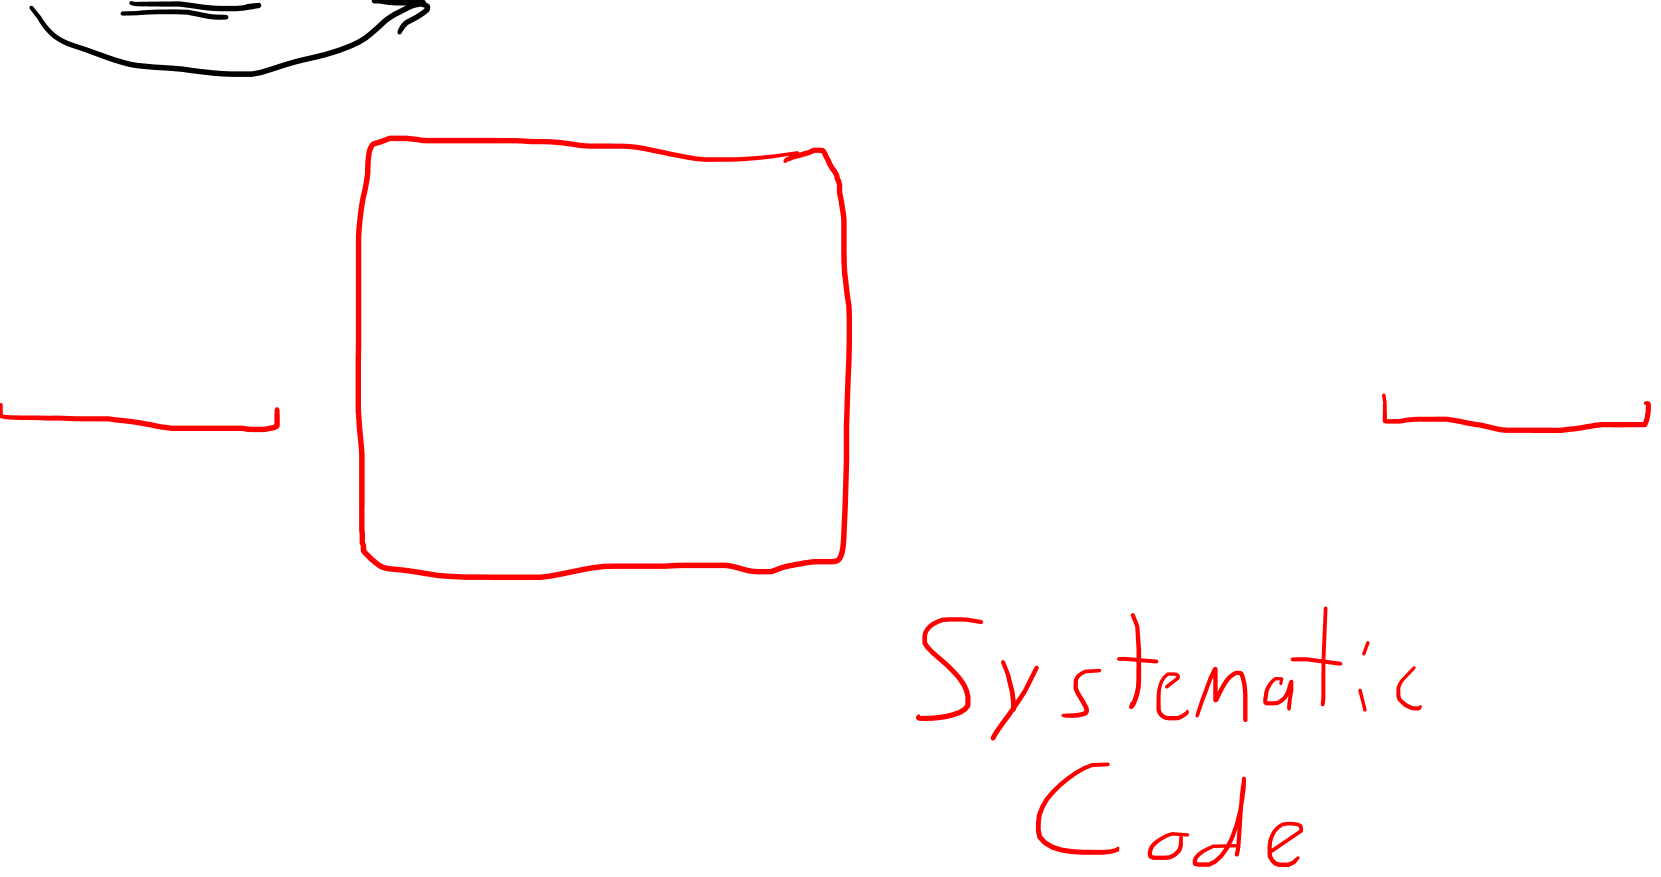 Systematic
Code